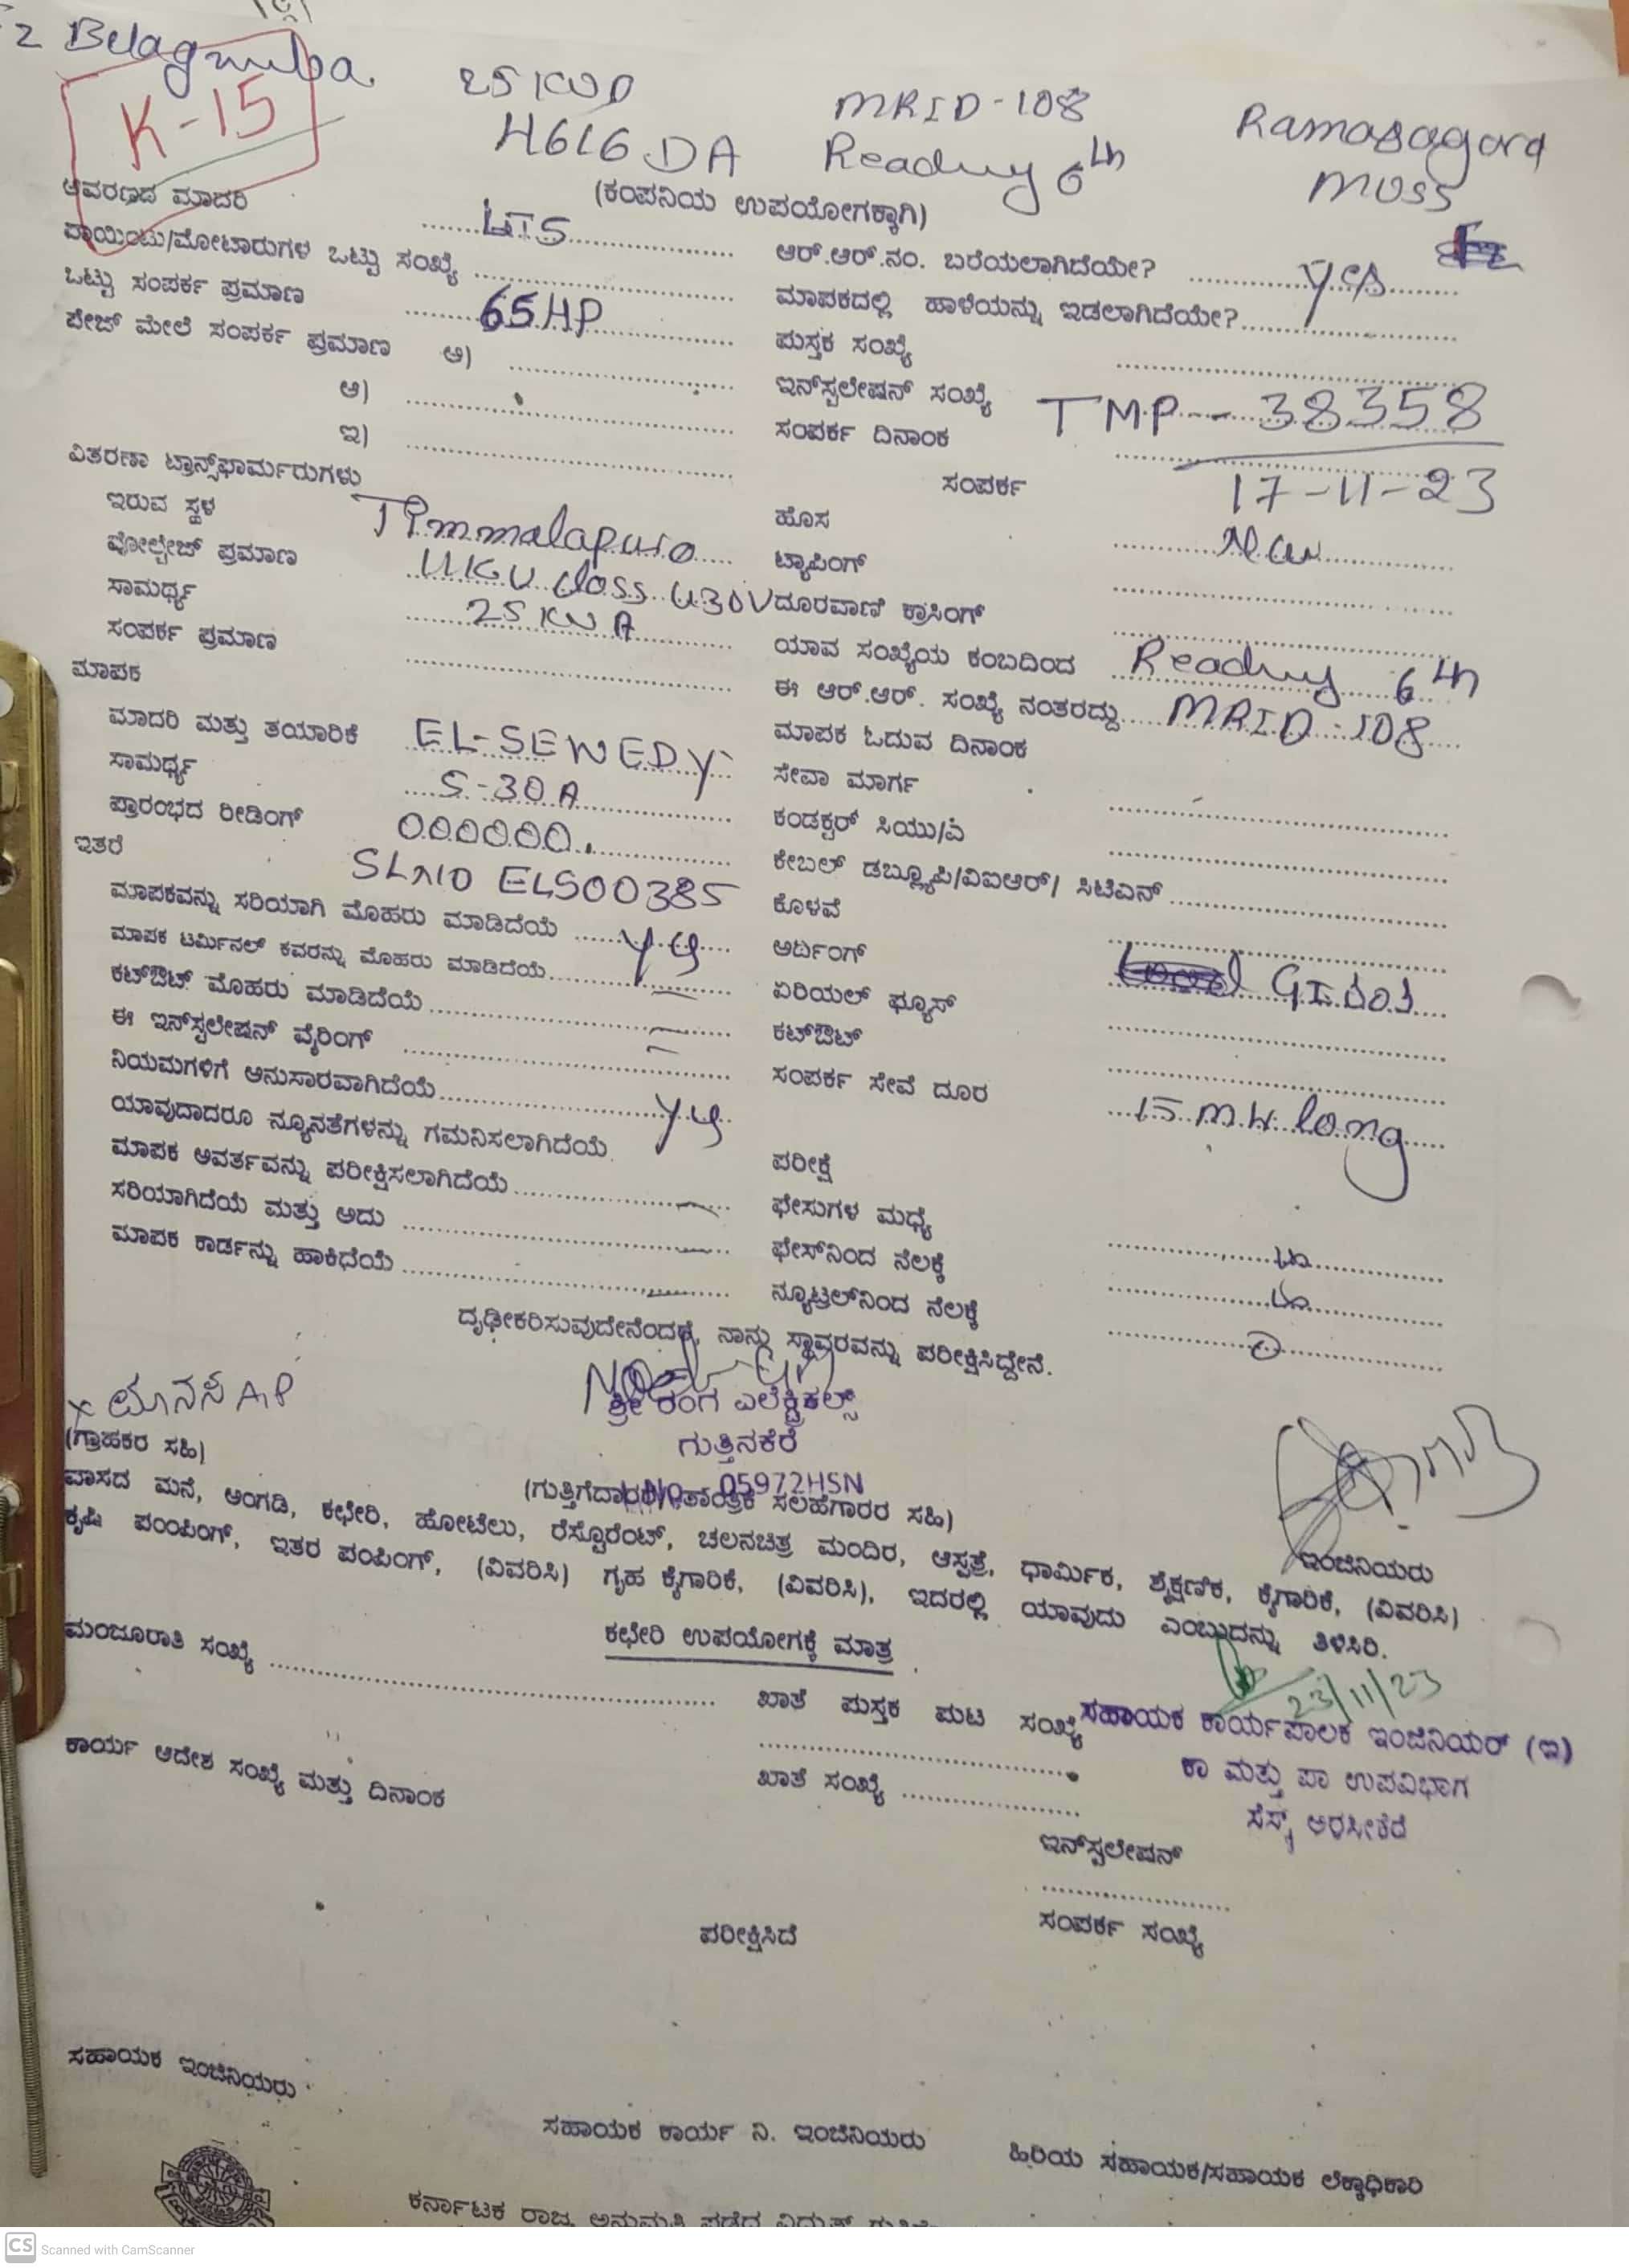 Belagumba
K-15
25 KVA
MRID-108
Ramasagara
H616 DA
Reading 6th
MUSS
ಆವರಣದ ಮಾದರಿ
LT5
(ಕಂಪನಿಯ ಉಪಯೋಗಕ್ಕಾಗಿ)
ಪಾಯಿಂಟು/ಮೋಟಾರುಗಳ ಒಟ್ಟು ಸಂಖ್ಯೆ
ಆರ್.ಆರ್.ನಂ. ಬರೆಯಲಾಗಿದೆಯೇ? yes
ಒಟ್ಟು ಸಂಪರ್ಕ ಪ್ರಮಾಣ 65HP
ಮಾಪಕದಲ್ಲಿ ಹಾಳೆಯನ್ನು ಇಡಲಾಗಿದೆಯೇ?
ಪೇಜ್ ಮೇಲೆ ಸಂಪರ್ಕ ಪ್ರಮಾಣ ಅ)
ಪುಸ್ತಕ ಸಂಖ್ಯೆ
ಆ)
ಇನ್‌ಸ್ಟಲೇಷನ್ ಸಂಖ್ಯೆ TMP-38358
ಇ)
ಸಂಪರ್ಕ ದಿನಾಂಕ
ವಿತರಣಾ ಟ್ರಾನ್ಸ್‌ಫಾರ್ಮರುಗಳು
ಸಂಪರ್ಕ 17-11-23
ಇರುವ ಸ್ಥಳ Timmalapura
ಹೊಸ New
ವೋಲ್ಟೇಜ್ ಪ್ರಮಾಣ 11KV class 430V
ಟ್ಯಾಪಿಂಗ್
ಸಾಮರ್ಥ್ಯ 25 KVA
ದೂರವಾಣಿ ಕ್ರಾಸಿಂಗ್
ಸಂಪರ್ಕ ಪ್ರಮಾಣ
ಯಾವ ಸಂಖ್ಯೆಯ ಕಂಬದಿಂದ Reading 6th
ಮಾಪಕ
ಈ ಆರ್.ಆರ್. ಸಂಖ್ಯೆ ನಂತರದ್ದು MRID-108
ಮಾದರಿ ಮತ್ತು ತಯಾರಿಕೆ EL-SEWEDY
ಮಾಪಕ ಓದುವ ದಿನಾಂಕ
ಸಾಮರ್ಥ್ಯ 5-30A
ಸೇವಾ ಮಾರ್ಗ
ಪ್ರಾರಂಭದ ರೀಡಿಂಗ್ 000000.
ಕಂಡಕ್ಟರ್ ಸಿಯು/ಎ
ಇತರೆ SLNO ELS00385
ಕೇಬಲ್ ಡಬ್ಲ್ಯೂಪಿ/ವಿಐಆರ್/ ಸಿಟಿಎಸ್
ಮಾಪಕವನ್ನು ಸರಿಯಾಗಿ ಮೊಹರು ಮಾಡಿದೆಯೆ yes
ಕೊಳವೆ
ಮಾಪಕ ಟರ್ಮಿನಲ್ ಕವರನ್ನು ಮೊಹರು ಮಾಡಿದೆಯೆ
ಅರ್ಥಿಂಗ್
ಕಟ್‌ಔಟ್ ಮೊಹರು ಮಾಡಿದೆಯೆ
ಏರಿಯಲ್ ಫ್ಯೂಸ್
ಈ ಇನ್‌ಸ್ಟಲೇಷನ್ ವೈರಿಂಗ್
ಕಟ್‌ಔಟ್
ನಿಯಮಗಳಿಗೆ ಅನುಸಾರವಾಗಿದೆಯೆ yes
ಸಂಪರ್ಕ ಸೇವೆ ದೂರ 15 m.tr long
ಯಾವುದಾದರೂ ನ್ಯೂನತೆಗಳನ್ನು ಗಮನಿಸಲಾಗಿದೆಯೆ
ಪರೀಕ್ಷೆ
ಮಾಪಕ ಆವರ್ತವನ್ನು ಪರೀಕ್ಷಿಸಲಾಗಿದೆಯೆ
ಫೇಸುಗಳ ಮಧ್ಯೆ
ಸರಿಯಾಗಿದೆಯೆ ಮತ್ತು ಅದು
ಫೇಸ್‌ನಿಂದ ನೆಲಕ್ಕೆ
ಮಾಪಕ ಕಾರ್ಡನ್ನು ಹಾಕಿದೆಯೆ
ನ್ಯೂಟ್ರಲ್‌ನಿಂದ ನೆಲಕ್ಕೆ
ದೃಢೀಕರಿಸುವುದೇನೆಂದರೆ, ನಾನು ಸ್ಥಾವರವನ್ನು ಪರೀಕ್ಷಿಸಿದ್ದೇನೆ.
ಮಾನಸ A.P
ಶ್ರೀ ರಂಗ ಎಲೆಕ್ಟ್ರಿಕಲ್ಸ್
(ಗ್ರಾಹಕರ ಸಹಿ)
ಗುತ್ತಿನಕೆರೆ
L No. 05972HSN
(ಗುತ್ತಿಗೆದಾರರ/ತಾಂತ್ರಿಕ ಸಲಹೆಗಾರರ ಸಹಿ)
ಇಂಜಿನಿಯರು
ವಾಸದ ಮನೆ, ಅಂಗಡಿ, ಕಛೇರಿ, ಹೋಟೆಲು, ರೆಸ್ಟೊರೆಂಟ್, ಚಲನಚಿತ್ರ ಮಂದಿರ, ಆಸ್ಪತ್ರೆ, ಧಾರ್ಮಿಕ, ಶೈಕ್ಷಣಿಕ, ಕೈಗಾರಿಕೆ, (ವಿವರಿಸಿ)
ಕೃಷಿ ಪಂಪಿಂಗ್, ಇತರ ಪಂಪಿಂಗ್, (ವಿವರಿಸಿ) ಗೃಹ ಕೈಗಾರಿಕೆ, (ವಿವರಿಸಿ), ಇದರಲ್ಲಿ ಯಾವುದು ಎಂಬುದನ್ನು ತಿಳಿಸಿರಿ.
ಕಛೇರಿ ಉಪಯೋಗಕ್ಕೆ ಮಾತ್ರ
ಮಂಜೂರಾತಿ ಸಂಖ್ಯೆ
23/11/23
ಖಾತೆ ಪುಸ್ತಕ ಪುಟ ಸಂಖ್ಯೆ
ಸಹಾಯಕ ಕಾರ್ಯಪಾಲಕ ಇಂಜಿನಿಯರ್ (ಇ)
ಕಾ ಮತ್ತು ಪಾ ಉಪವಿಭಾಗ
ಕಾರ್ಯ ಆದೇಶ ಸಂಖ್ಯೆ ಮತ್ತು ದಿನಾಂಕ
ಖಾತೆ ಸಂಖ್ಯೆ
ಸೆಸ್ಕ್ ಅರಸೀಕೆರೆ
ಇನ್‌ಸ್ಟಲೇಷನ್
ಸಂಪರ್ಕ ಸಂಖ್ಯೆ
ಪರೀಕ್ಷಿಸಿದೆ
ಸಹಾಯಕ ಇಂಜಿನಿಯರು
ಸಹಾಯಕ ಕಾರ್ಯ ನಿ. ಇಂಜಿನಿಯರು
ಹಿರಿಯ ಸಹಾಯಕ/ಸಹಾಯಕ ಲೆಕ್ಕಾಧಿಕಾರಿ
ಕರ್ನಾಟಕ ರಾಜ್ಯ ಅನುಮತಿ ಪಡೆದ ವಿದ್ಯುತ್
CS Scanned with CamScanner